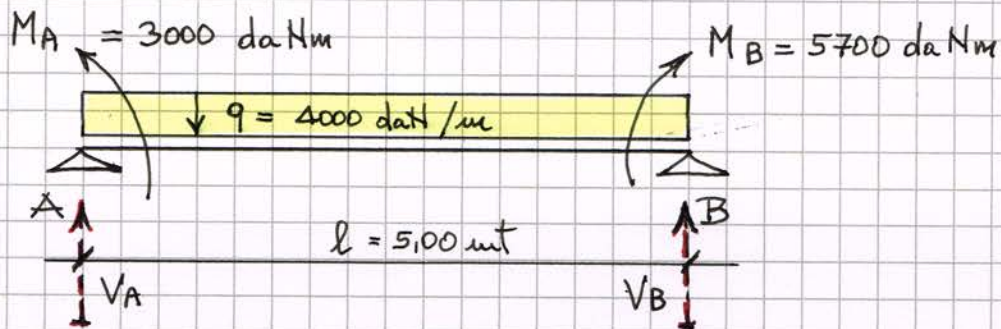 MA = 3000 daNm
MB = 5700 daNm
q = 4000 daN/m
A
B
l = 5,00 mt
VA
VB